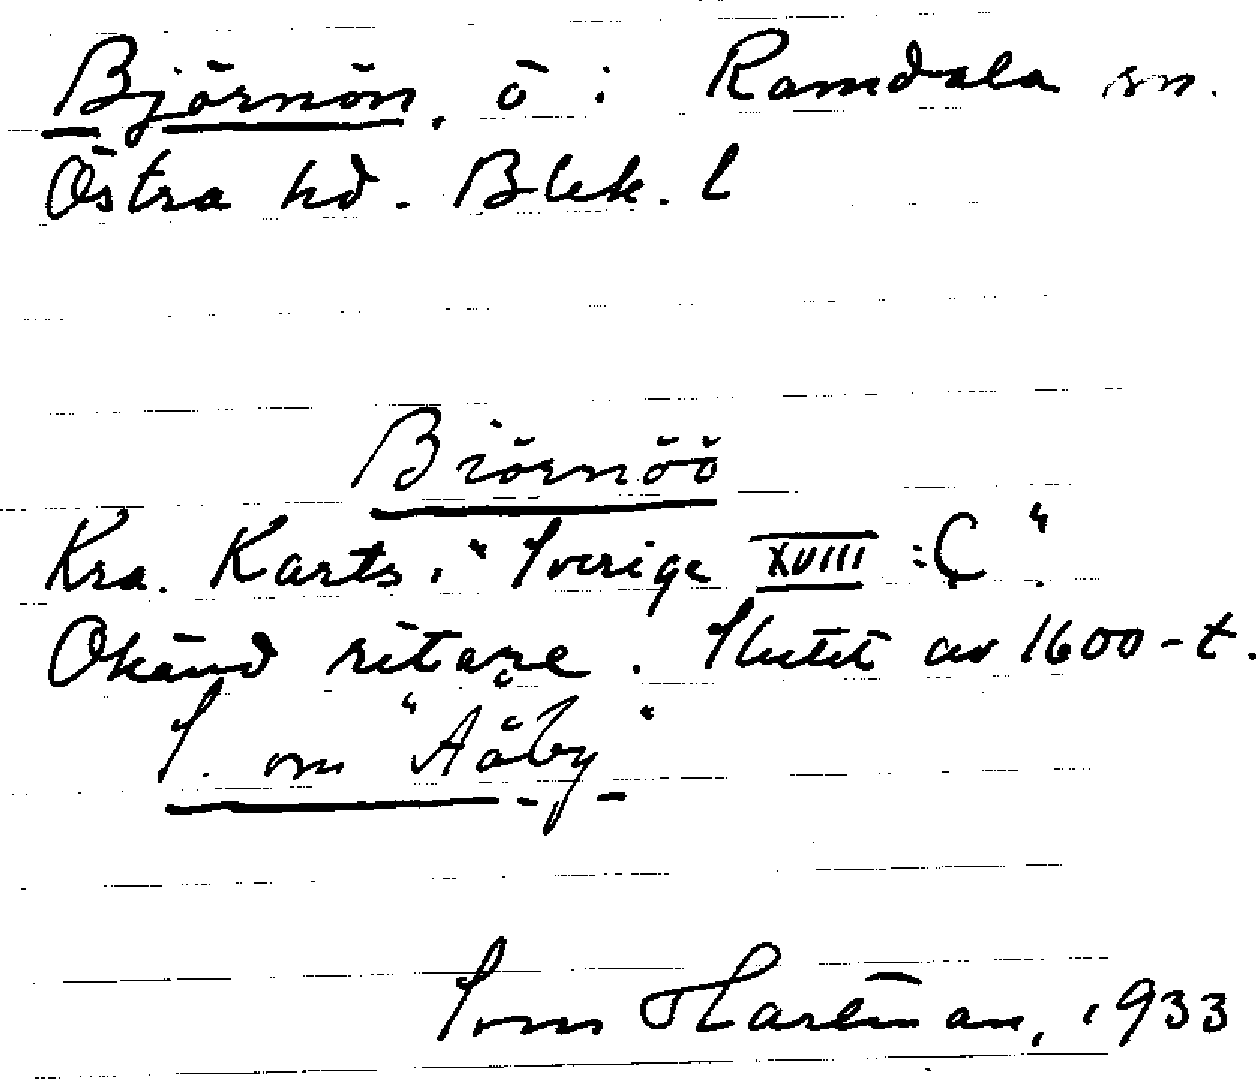 Björnön, ö i Ramdala sn.
Östra hd. Blek. l
Biörnöö
Kra. Karts. "Sverige XVIII:C".
Okänd ritare. Slutet av 1600-t.
S. om "Aåby"
Sven Hartman, 1933